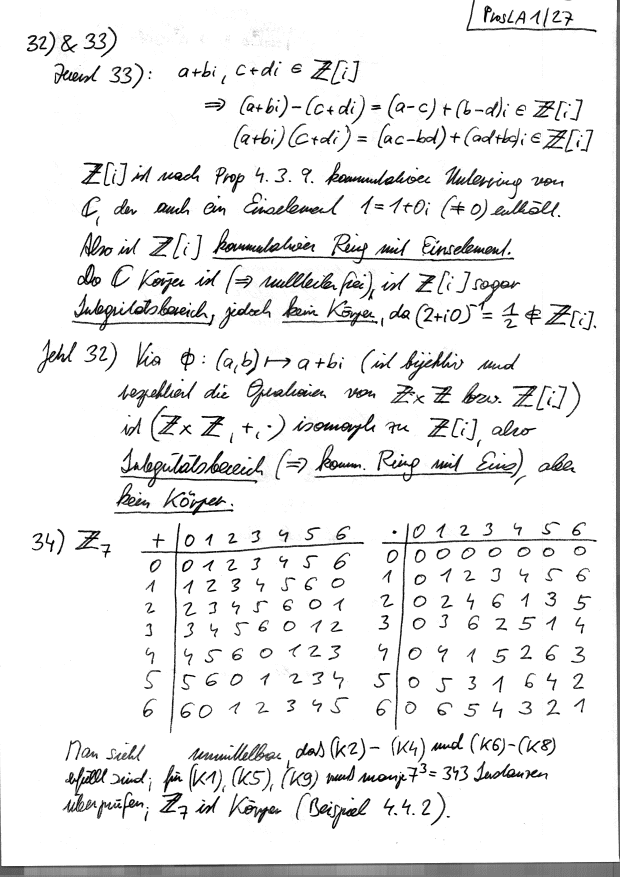 ProsLA1/27
32) & 33)
Zuerst 33): a+bi, c+di ∈ ℤ[i]
⇒ (a+bi)-(c+di) = (a-c)+(b-d)i ∈ ℤ[i]
(a+bi)(c+di) = (ac-bd)+(ad+bc)i ∈ ℤ[i]
ℤ[i] ist nach Prop 4.3.9. kommutativer Unterring von
ℂ, der auch ein Einselement 1=1+0i (≠0) enthält.
Also ist ℤ[i] kommutativer Ring mit Einselement.
Da ℂ Körper ist (⇒ nullteilerfrei), ist ℤ[i] sogar
Integritätsbereich, jedoch kein Körper, da (2+i0)⁻¹ = 1/2 ∉ ℤ[i].
Jetzt 32) Via Φ: (a,b) ↦ a+bi (ist bijektiv und
respektiert die Operationen von ℤ×ℤ bzw. ℤ[i])
ist (ℤ×ℤ, +, ·) isomorph zu ℤ[i], also
Integritätsbereich (⇒ komm. Ring mit Eins), aber
kein Körper.
34) ℤ₇ + | 0 1 2 3 4 5 6 · | 0 1 2 3 4 5 6
0 | 0 1 2 3 4 5 6 0 | 0 0 0 0 0 0 0
1 | 1 2 3 4 5 6 0 1 | 0 1 2 3 4 5 6
2 | 2 3 4 5 6 0 1 2 | 0 2 4 6 1 3 5
3 | 3 4 5 6 0 1 2 3 | 0 3 6 2 5 1 4
4 | 4 5 6 0 1 2 3 4 | 0 4 1 5 2 6 3
5 | 5 6 0 1 2 3 4 5 | 0 5 3 1 6 4 2
6 | 6 0 1 2 3 4 5 6 | 0 6 5 4 3 2 1
Man sieht unmittelbar, daß (K2)-(K4) und (K6)-(K8)
erfüllt sind; für (K1), (K5), (K9) muß man je 7³ = 343 Instanzen
überprüfen; ℤ₇ ist Körper (Beispiel 4.4.2).